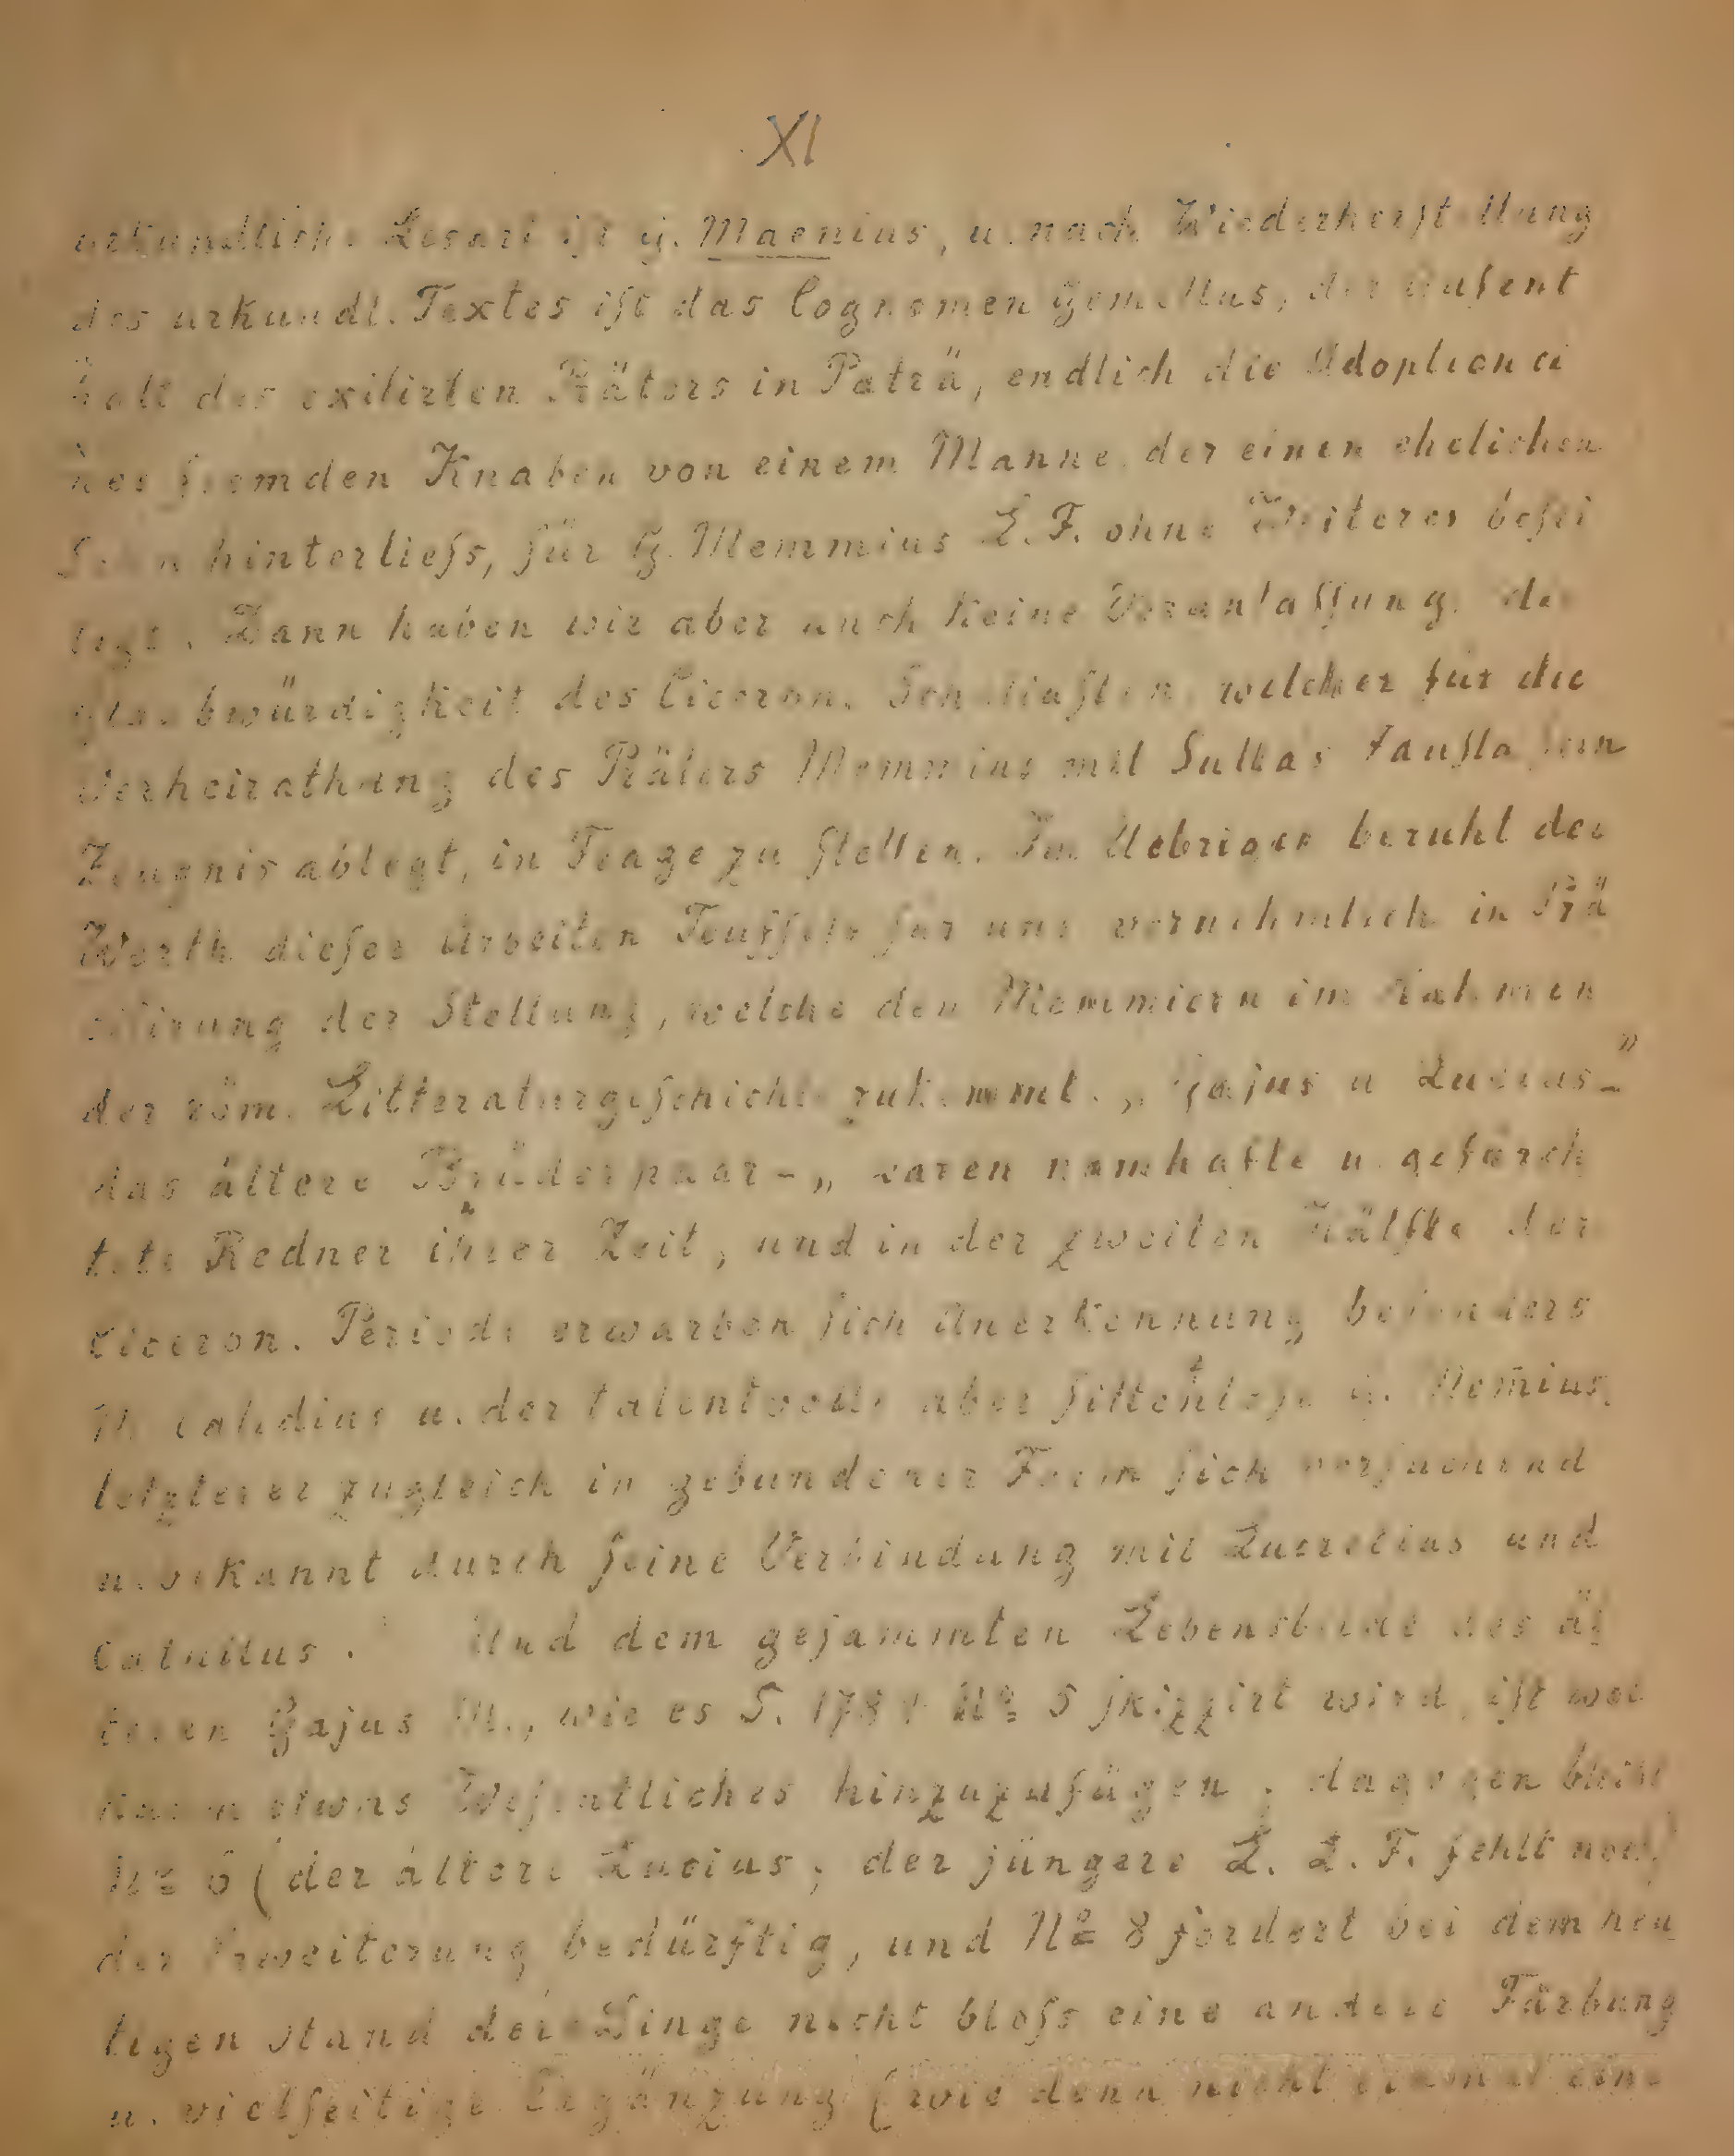 XI
urkundliche Lesart ist G. Maenius, u. nach Wiederherstellung
des urkundl. Textes ist das Cognomen Gemellus, der Aufent
halt des exilirten Prätors in Paträ, endlich die Adoption ei
nes fremden Knaben von einem Manne, der einen ehelichen
Sohn hinterliess, für G. Memmius L. F. ohne Weiteres besei
tigt. Dann haben wir aber auch keine Veranlassung, die
Glaubwürdigkeit des Ciceron. Scholiasten, welcher für die
Verheirathung des Prätors Memmius mit Sulla's Fausta sein
Zeugnis ablegt, in Frage zu stellen. Im Uebrigen beruht der
Werth dieser Arbeiten Teuffels für uns vornehmlich in Prä
cisirung der Stellung, welche den Memmiern im Rahmen
der röm. Litteraturgeschichte zukommt. „Gajus u Lucius"-
das ältere Brüderpaar - „waren namhafte u. gefürch
tete Redner ihrer Zeit, und in der zweiten Hälfte der
ciceron. Periode erwarben sich Anerkennung besonders
M. Calidius u. der talentvolle aber sittenlose G. Mem̄ius,
letzterer zugleich in gebundener Form sich versuchend
u. bekannt durch seine Verbindung mit Lucretius und
Catullus." Und dem gesammten Lebensbilde des äl
teren Gajus M., wie es S. 178 f No 5 skizzirt wird, ist wol
kaum etwas Wesentliches hinzuzufügen; dagegen bleibt
No 6 (der ältere Lucius; der jüngere L. L. F. fehlt noch)
der Erweiterung bedürftig, und No 8 fordert bei dem heu
tigen Stand der Dinge nicht bloss eine andere Färbung
u. vielseitige Ergänzung (wie denn nicht einmal eine